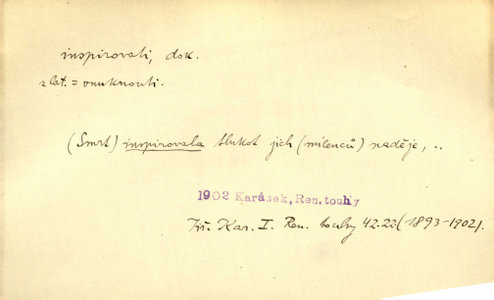 inspirovati, dok.
z lat. = vnuknouti.
(Smrt) inspirovala tlukot jich (milenců) naděje, ..
1902 Karásek, Ren. touhy
Kar. I. Ren. touhy 42.22 (1893-1902).